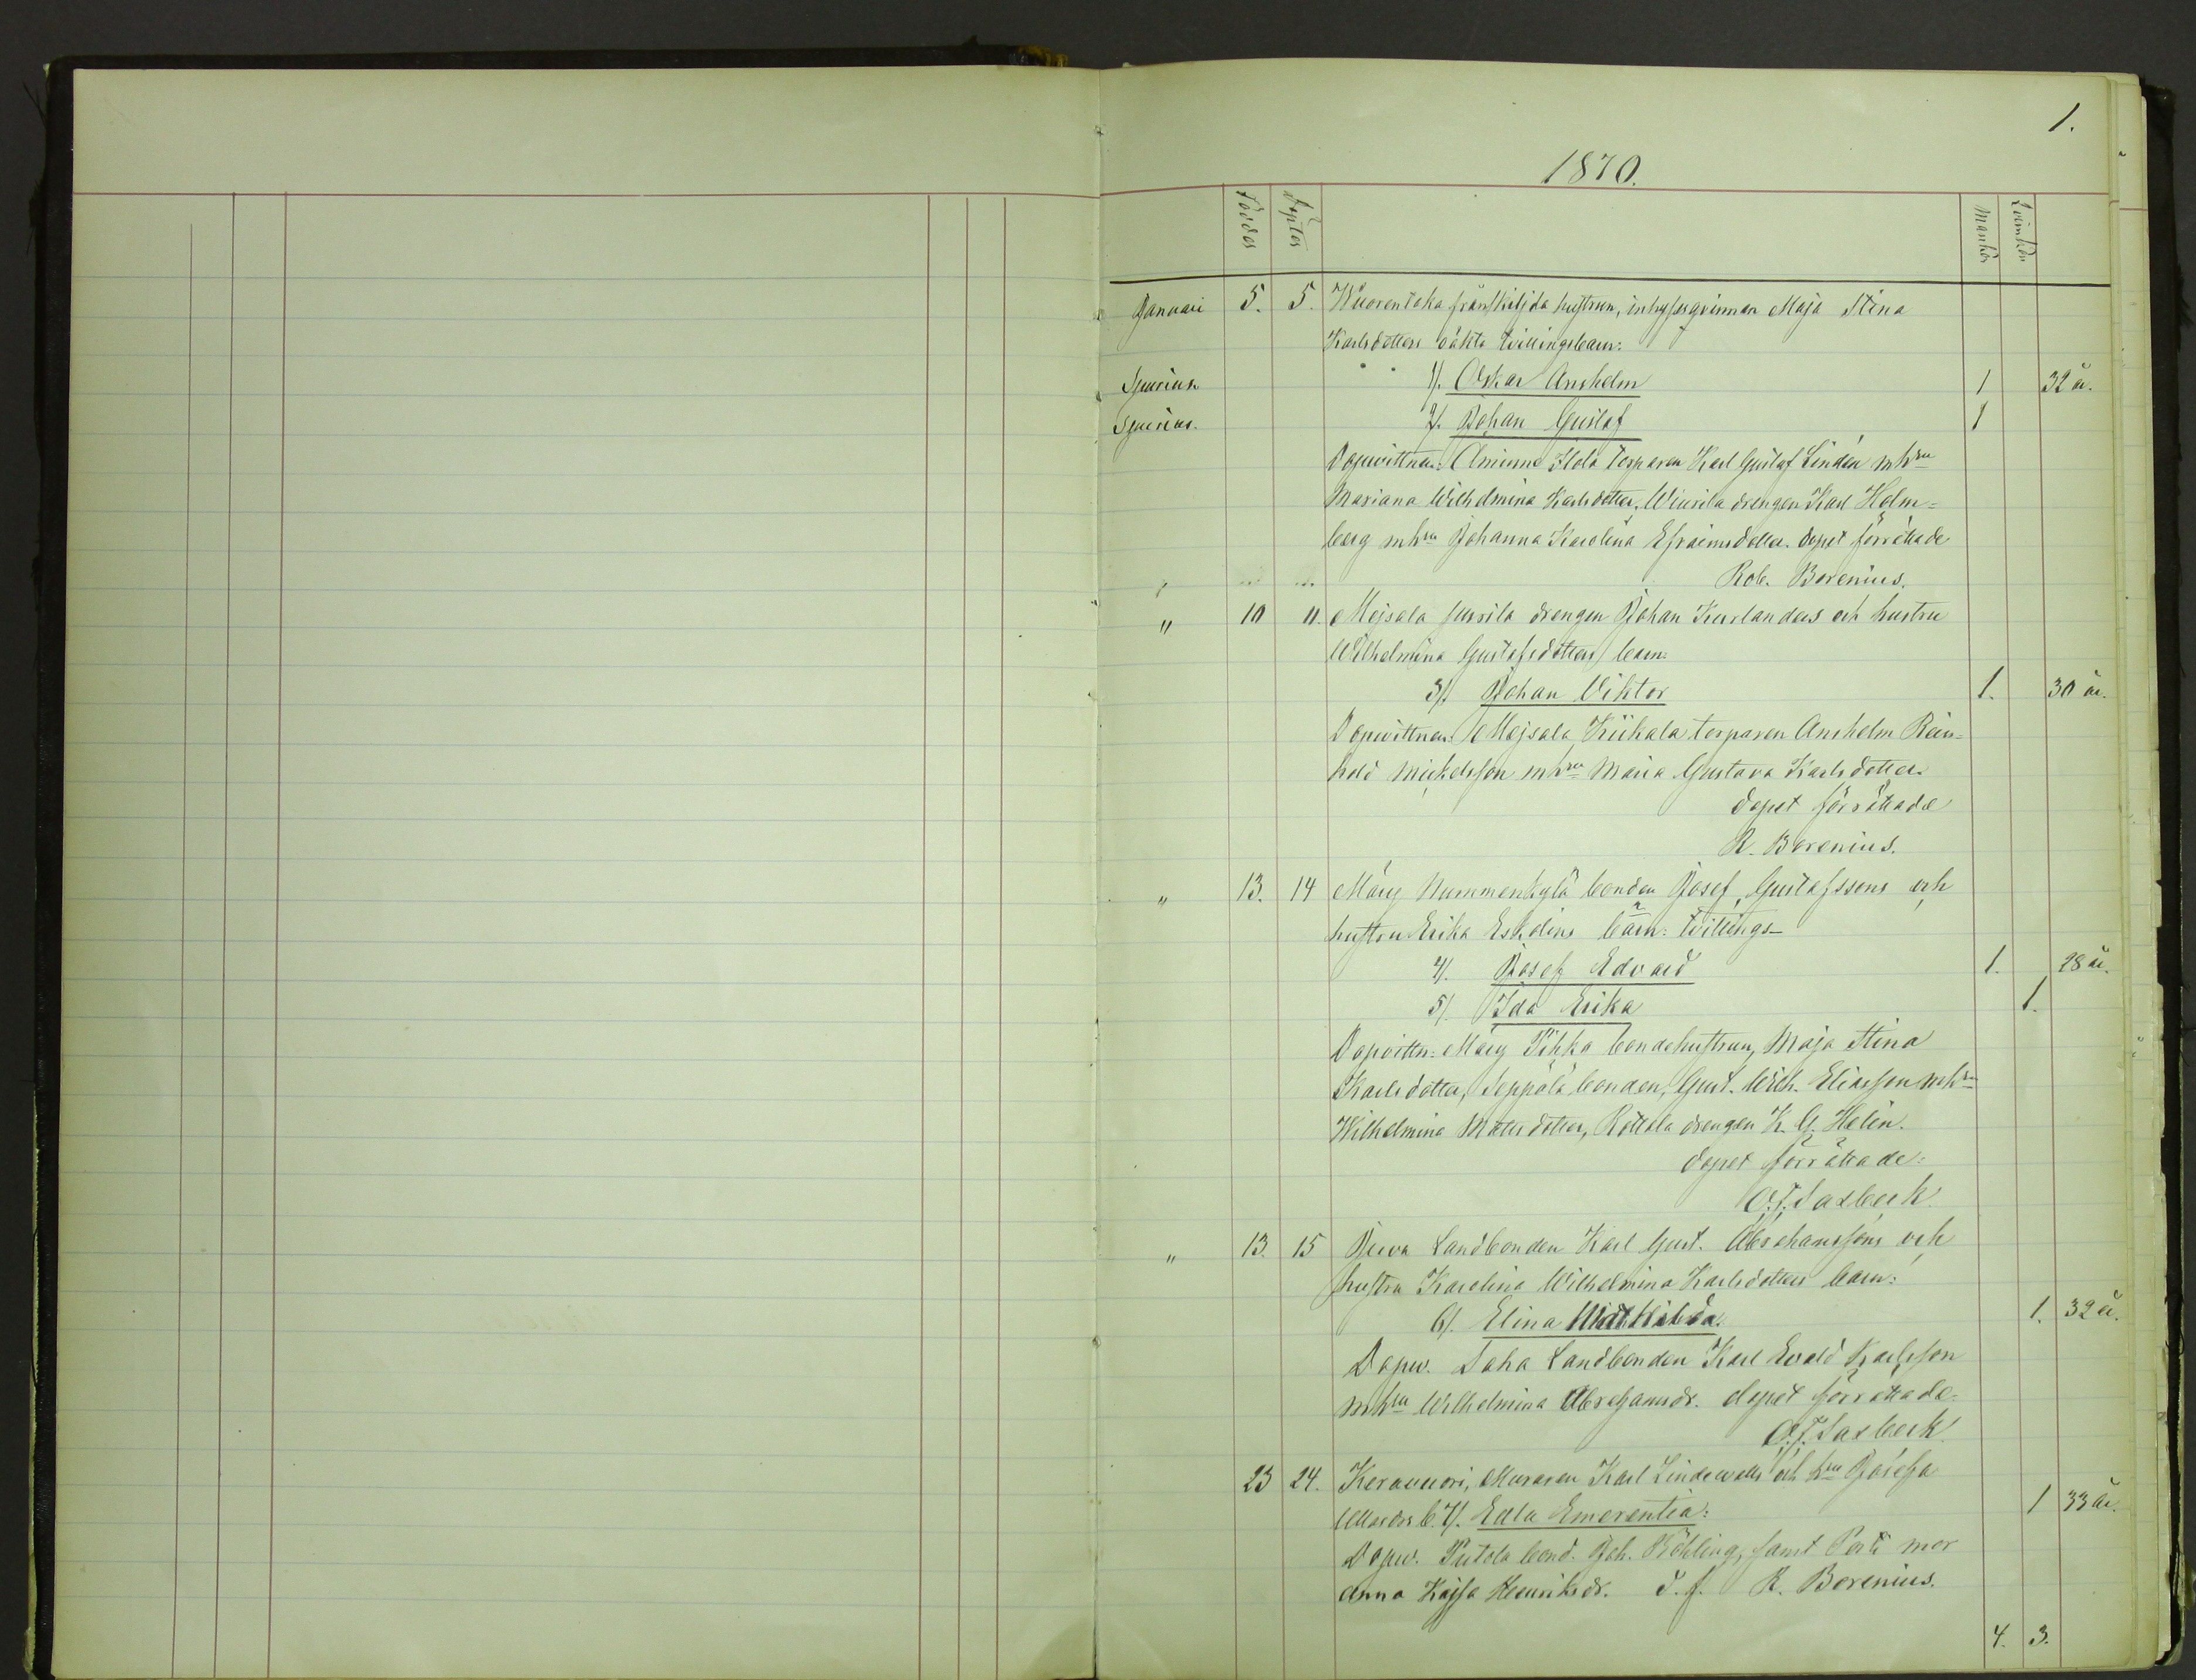 1.
1870.
Föddes Döptes Mankön Qvinkön
Januari 5. 5. Wuorentaka frånskiljda hustrun, inhyses qvinnan Maja Stina
Karlsdotters oäkta tvillingsbarn:
Spurius. 1/. Oskar Anshelm 1 32 år.
Spurius. 2/. Johan Gustaf 1
Dopvittnen: Torparen Karl Gustaf Lindén mhru
Mariana Wilhelmina Karlsdotter, drengen Karl Holm=
berg mhru Johanna Karolina Efraimsdotter. Dopet förrättade
Rob. Borenius.
" 10 11. Mejsala drengen Johan Kurlanders och hustru
Wilhelmina Gustafsdotters barn:
3/. Johan Viktor 1. 30 år.
Dopvittnen: Mejsala Kiikala torparen Anshelm Rein=
hold Mickelsson mhru Maria Gustava Karlsdotter.
Dopet förrättade
R. Borenius.
" 13. 14 Märy Nummenkylä bonden Josef Gustafssons och
hustru Erika Eskelins barn: tvillings-
4/. Josef Edvard 1. 28 år.
5/. Ida Erika 1.
Dopvittn: Märy Pihka bondehustrun, Maja Stina
Karlsdotter, Seppälä bonden, Gust. Wilh. Eliasson mhru
Wilhelmina Mattsdotter, Rottola drengen K. G. Helin.
Dopet förrättade:
O. F. Saxbeck
" 13. 15 Landbonden Karl Gust. Abrahamssons och
hustru Karolina Wilhelmina Karlsdotters barn:
6/. Elina Mathilda. 1. 32 år.
Dopv. Landbonden Karl Evald Karlsson
mhru Wilhelmina Abrahamsdr. dopet förrättade
O. F. Saxbeck
23 24. Keravuori, Muraren Karl Lindewalls och hru Josefa
b. 7/. Edla Emerentia: 1 33 år.
Dopv. bond. Joh. samt Perti mor
Anna Kajsa Henriksdr. d. f. R. Borenius.
4. 3.